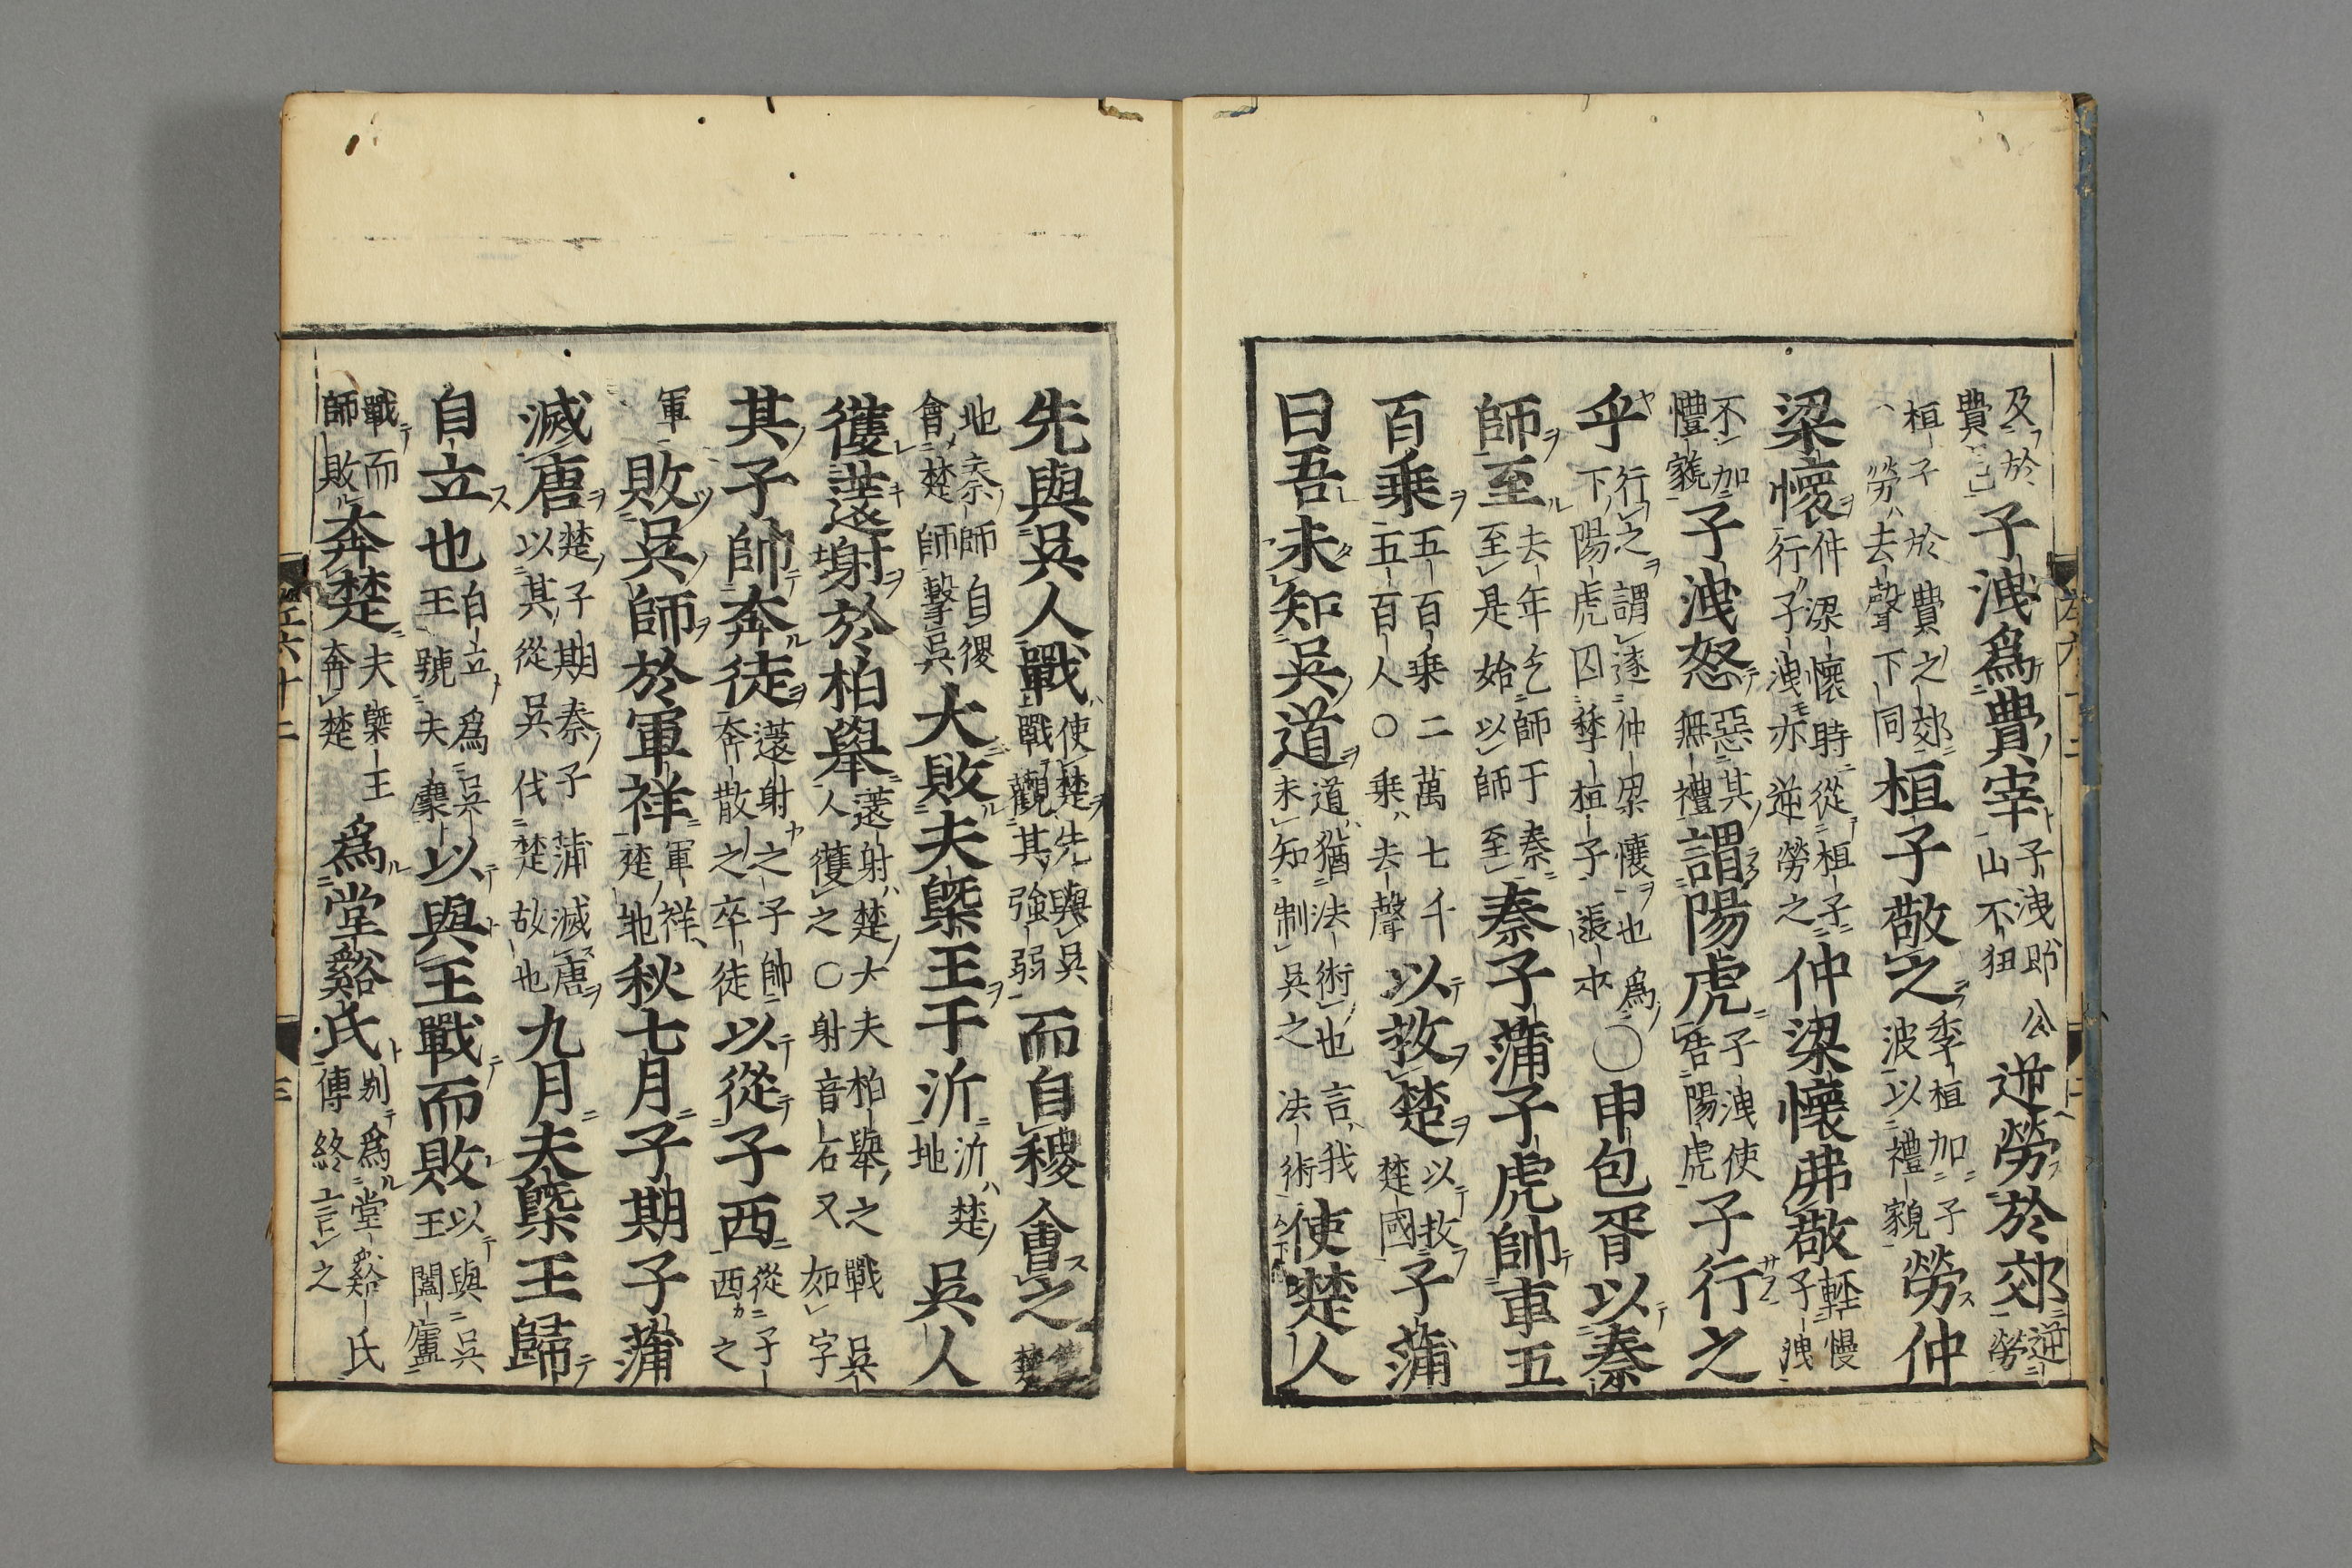 及於費已子洩爲費宰子洩即公山不狃逆勞於郊逆勞
桓子於費之郊勞去聲下同桓子敬之季桓加子波以禮貌勞仲
梁懷仲梁懷時從桓子行子洩亦逆勞之仲梁懷弗敬輕慢子洩
不加禮貌子洩怒惡其無禮謂陽虎子洩使告陽虎子行之
乎行之謂逐仲梁懷也爲下陽虎囚季桓子張本○申包胥以秦
師至去年乞師于秦至是始以師至秦子蒲子虎帥車五
百乘五百乘二萬七千五百人○乘去聲以救楚以救楚國子蒲
曰吾未知吳道道猶法術也言我未知制吳之法術使楚人
先與吳人戰使楚先與吳戰觀其強弱而自稷會之楚
地秦師自稷會楚師擊吳大敗夫槩王于沂沂楚地吳人
獲薳射於柏舉薳射楚大夫柏舉之戰吳人獲之○射音石又如字
其子帥奔徒薳射之子帥奔散之卒徒以從子西從子西之
軍敗吳師於軍祥軍祥楚地秋七月子期子蒲
滅唐楚子期秦子蒲滅唐以其從吳伐楚故也九月夫槩王歸
自立也自立爲吳王號夫槩以與王戰而敗以與吳王闔廬
戰而師敗奔楚夫槩王奔楚爲堂谿氏別爲堂谿氏傳終言之